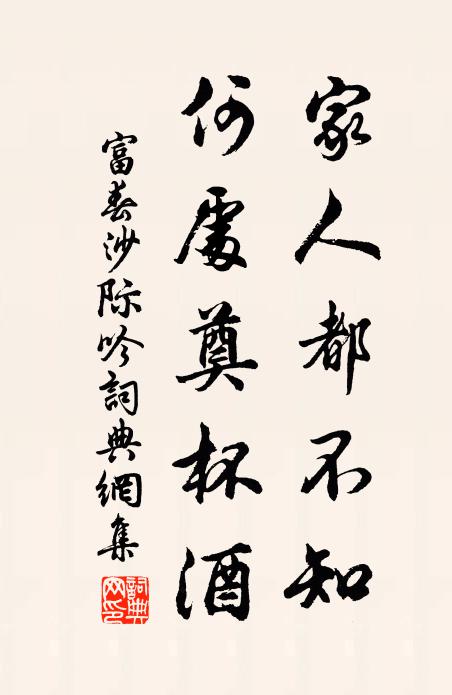 家人都不知
何處奠杯酒
富春沙际吟詞典網集
詞典网印